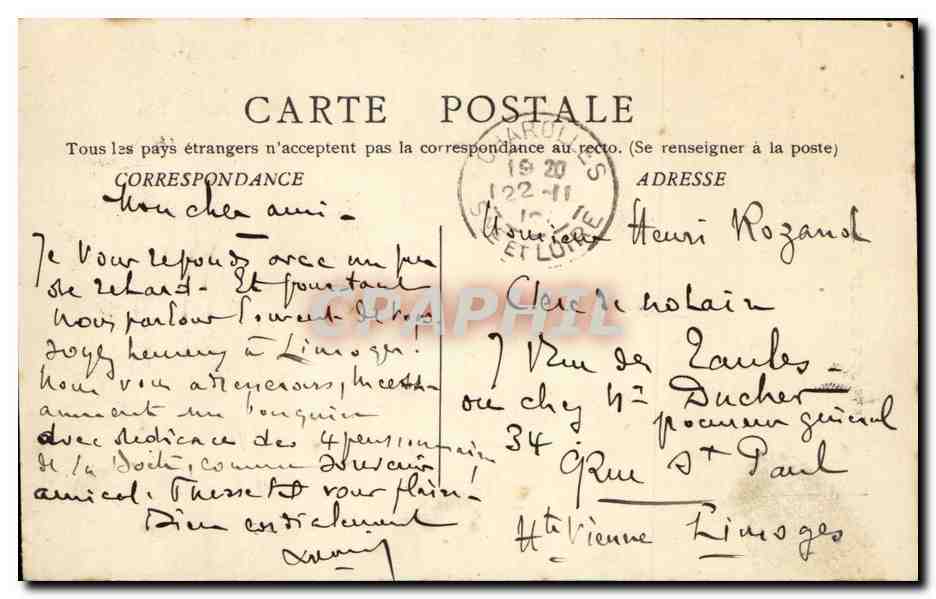 CARTE POSTALE
Tous les pays étrangers n'acceptent pas la correspondance au recto. (Se renseigner à la poste)
CORRESPONDANCE
ADRESSE
CHAROLLES
19 20
22-11
SNE ET LOIRE
CPAPHIL
Mon cher ami -
Je vous reponds avec un peu
de retard - Et pourtant
nous parlons souvent de vous.
Soyez heureux à Limoges!
Nous vous adresserons, incess-
amment un bouquin
avec dédicace des 4 pensionnaires
de la boîte, comme souvenir
amical.
Bien cordialement
Monsieur Henri Rozand
Clerc de notaire
7 Rue des
ou chez Mr Ducher
procureur général
34
Rue St Paul
Hte Vienne Limoges